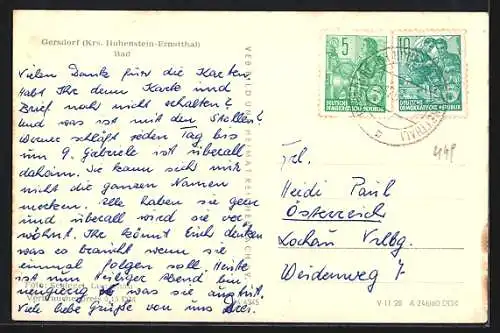 Gersdorf (Krs. Hohenstein-Ernstthal)
Bad
Vielen Dank für die Karten
Habt Ihr denn Karte und
Brief noch nicht erhalten?
Und was ist mit den Stollen?
Werner schläft jeden Tag bis
um 9. Gabriele ist überall
daheim. Sie kann sich nur
nicht die ganzen Namen
merken. Alle haben sie gern
und überall wird sie ver
wöhnt. Ihr könnt Euch denken
was es braucht wenn sie
einmal folgen soll. Heute
ist nun Heiliger Abend bin
neugierig was sie
Viele liebe Grüße von uns Drei.
Foto:
VEB BILD UND HEIMAT REICHENBACH I. V.
5
DEUTSCHE
DEMOKRATISCHE REPUBLIK
10
DEUTSCHE
DEMOKRATISCHE REPUBLIK
Frl.
Heidi Paul
Österreich
Lochau Vrlbg.
Weidenweg 7
V 11 28